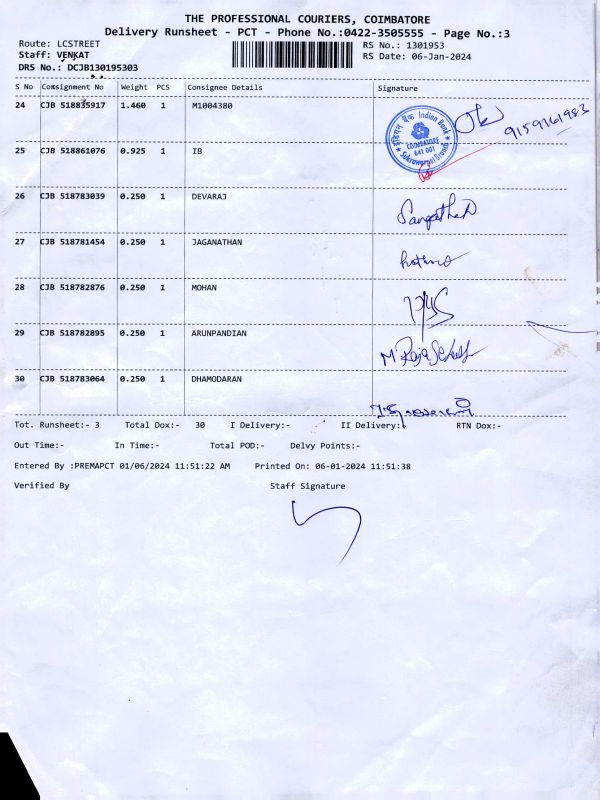 THE PROFESSIONAL COURIERS, COIMBATORE
Delivery Runsheet - PCT - Phone No.:0422-3505555 - Page No.:3
Route: LCSTREET
RS No.: 1301953
Staff: VENKAT
RS Date: 06-Jan-2024
DRS No.: DCJB130195303
S No Consignment No Weight PCS Consignee Details Signature
24 CJB 518835917 1.460 1 M1004380
इंडियन बैंक Indian Bank
COIMBATORE
641 001
9159161983
25 CJB 518861076 0.925 1 IB
26 CJB 518783039 0.250 1 DEVARAJ
27 CJB 518781454 0.250 1 JAGANATHAN
28 CJB 518782876 0.250 1 MOHAN
29 CJB 518782895 0.250 1 ARUNPANDIAN
30 CJB 518783064 0.250 1 DHAMODARAN
Tot. Runsheet:- 3 Total Dox:- 30 I Delivery:- II Delivery:- RTN Dox:-
Out Time:- In Time:- Total POD:- Delvy Points:-
Entered By :PREMAPCT 01/06/2024 11:51:22 AM Printed On: 06-01-2024 11:51:38
Verified By Staff Signature